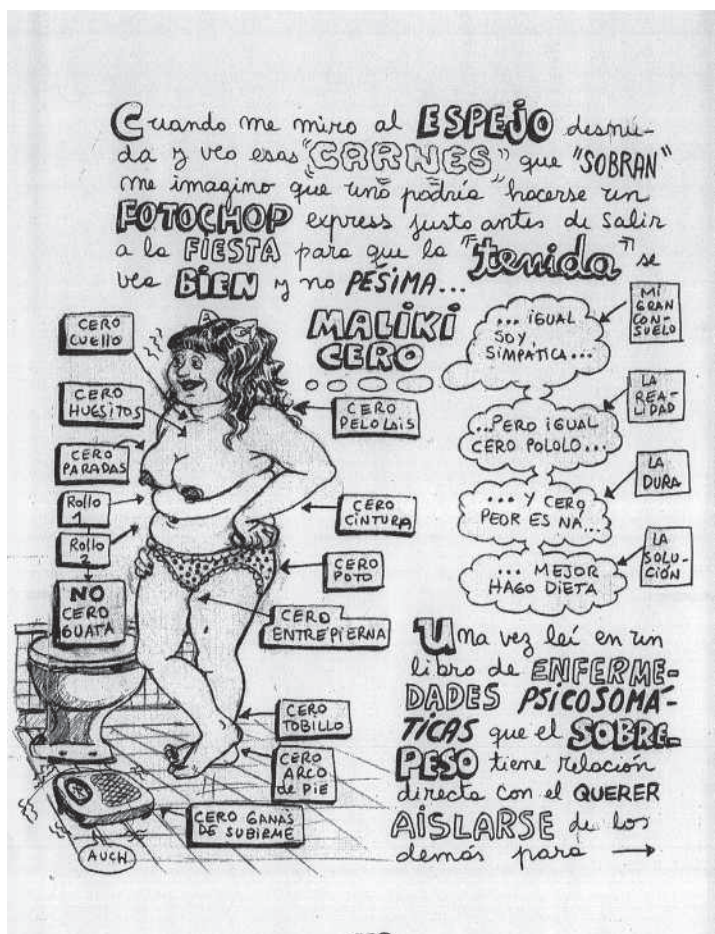 Cuando me miro al ESPEJO desnu-
da y veo esas "CARNES" que "SOBRAN"
me imagino que uno podría hacerse un
FOTOCHOP express justo antes de salir
a la FIESTA para que la "tenida" se
vea BIEN y no PÉSIMA...
MALIKI
CERO
CERO
CUELLO
CERO
HUESITOS
CERO
PARADAS
Rollo
1
Rollo
2
NO
CERO
GUATA
CERO
PELO LAIS
CERO
CINTURA
CERO
POTO
CERO
ENTREPIERNA
CERO
TOBILLO
CERO
ARCO
de PIE
CERO GANAS
DE SUBIRME
AUCH
... IGUAL
SOY,
SIMPATICA...
MI
GRAN
CON-
SUELO
...PERO IGUAL
CERO POLOLO...
LA
REA-
LIDAD
... Y CERO
PEOR ES NA...
LA
DURA
... MEJOR
HAGO DIETA
LA
SOLU-
CIÓN
Una vez leí en un
libro de ENFERME-
DADES PSICOSOMÁ-
TICAS que el SOBRE-
PESO tiene relación
directa con el QUERER
AISLARSE de los
demás para →